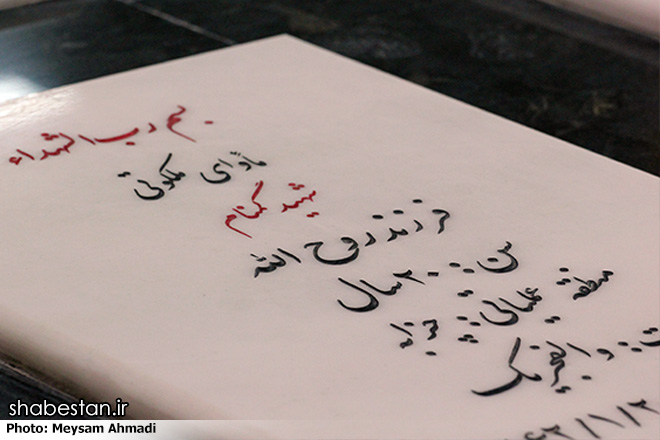 بسم رب الشهداء
مأوای ملکوتی
شهید گمنام
فرزند روح الله
سن: ۲۰ سال
منطقه عملیاتی: شرهانی
ت: والفجر یک
۶۲/۱/۲
shabestan.ir
Photo: Meysam Ahmadi